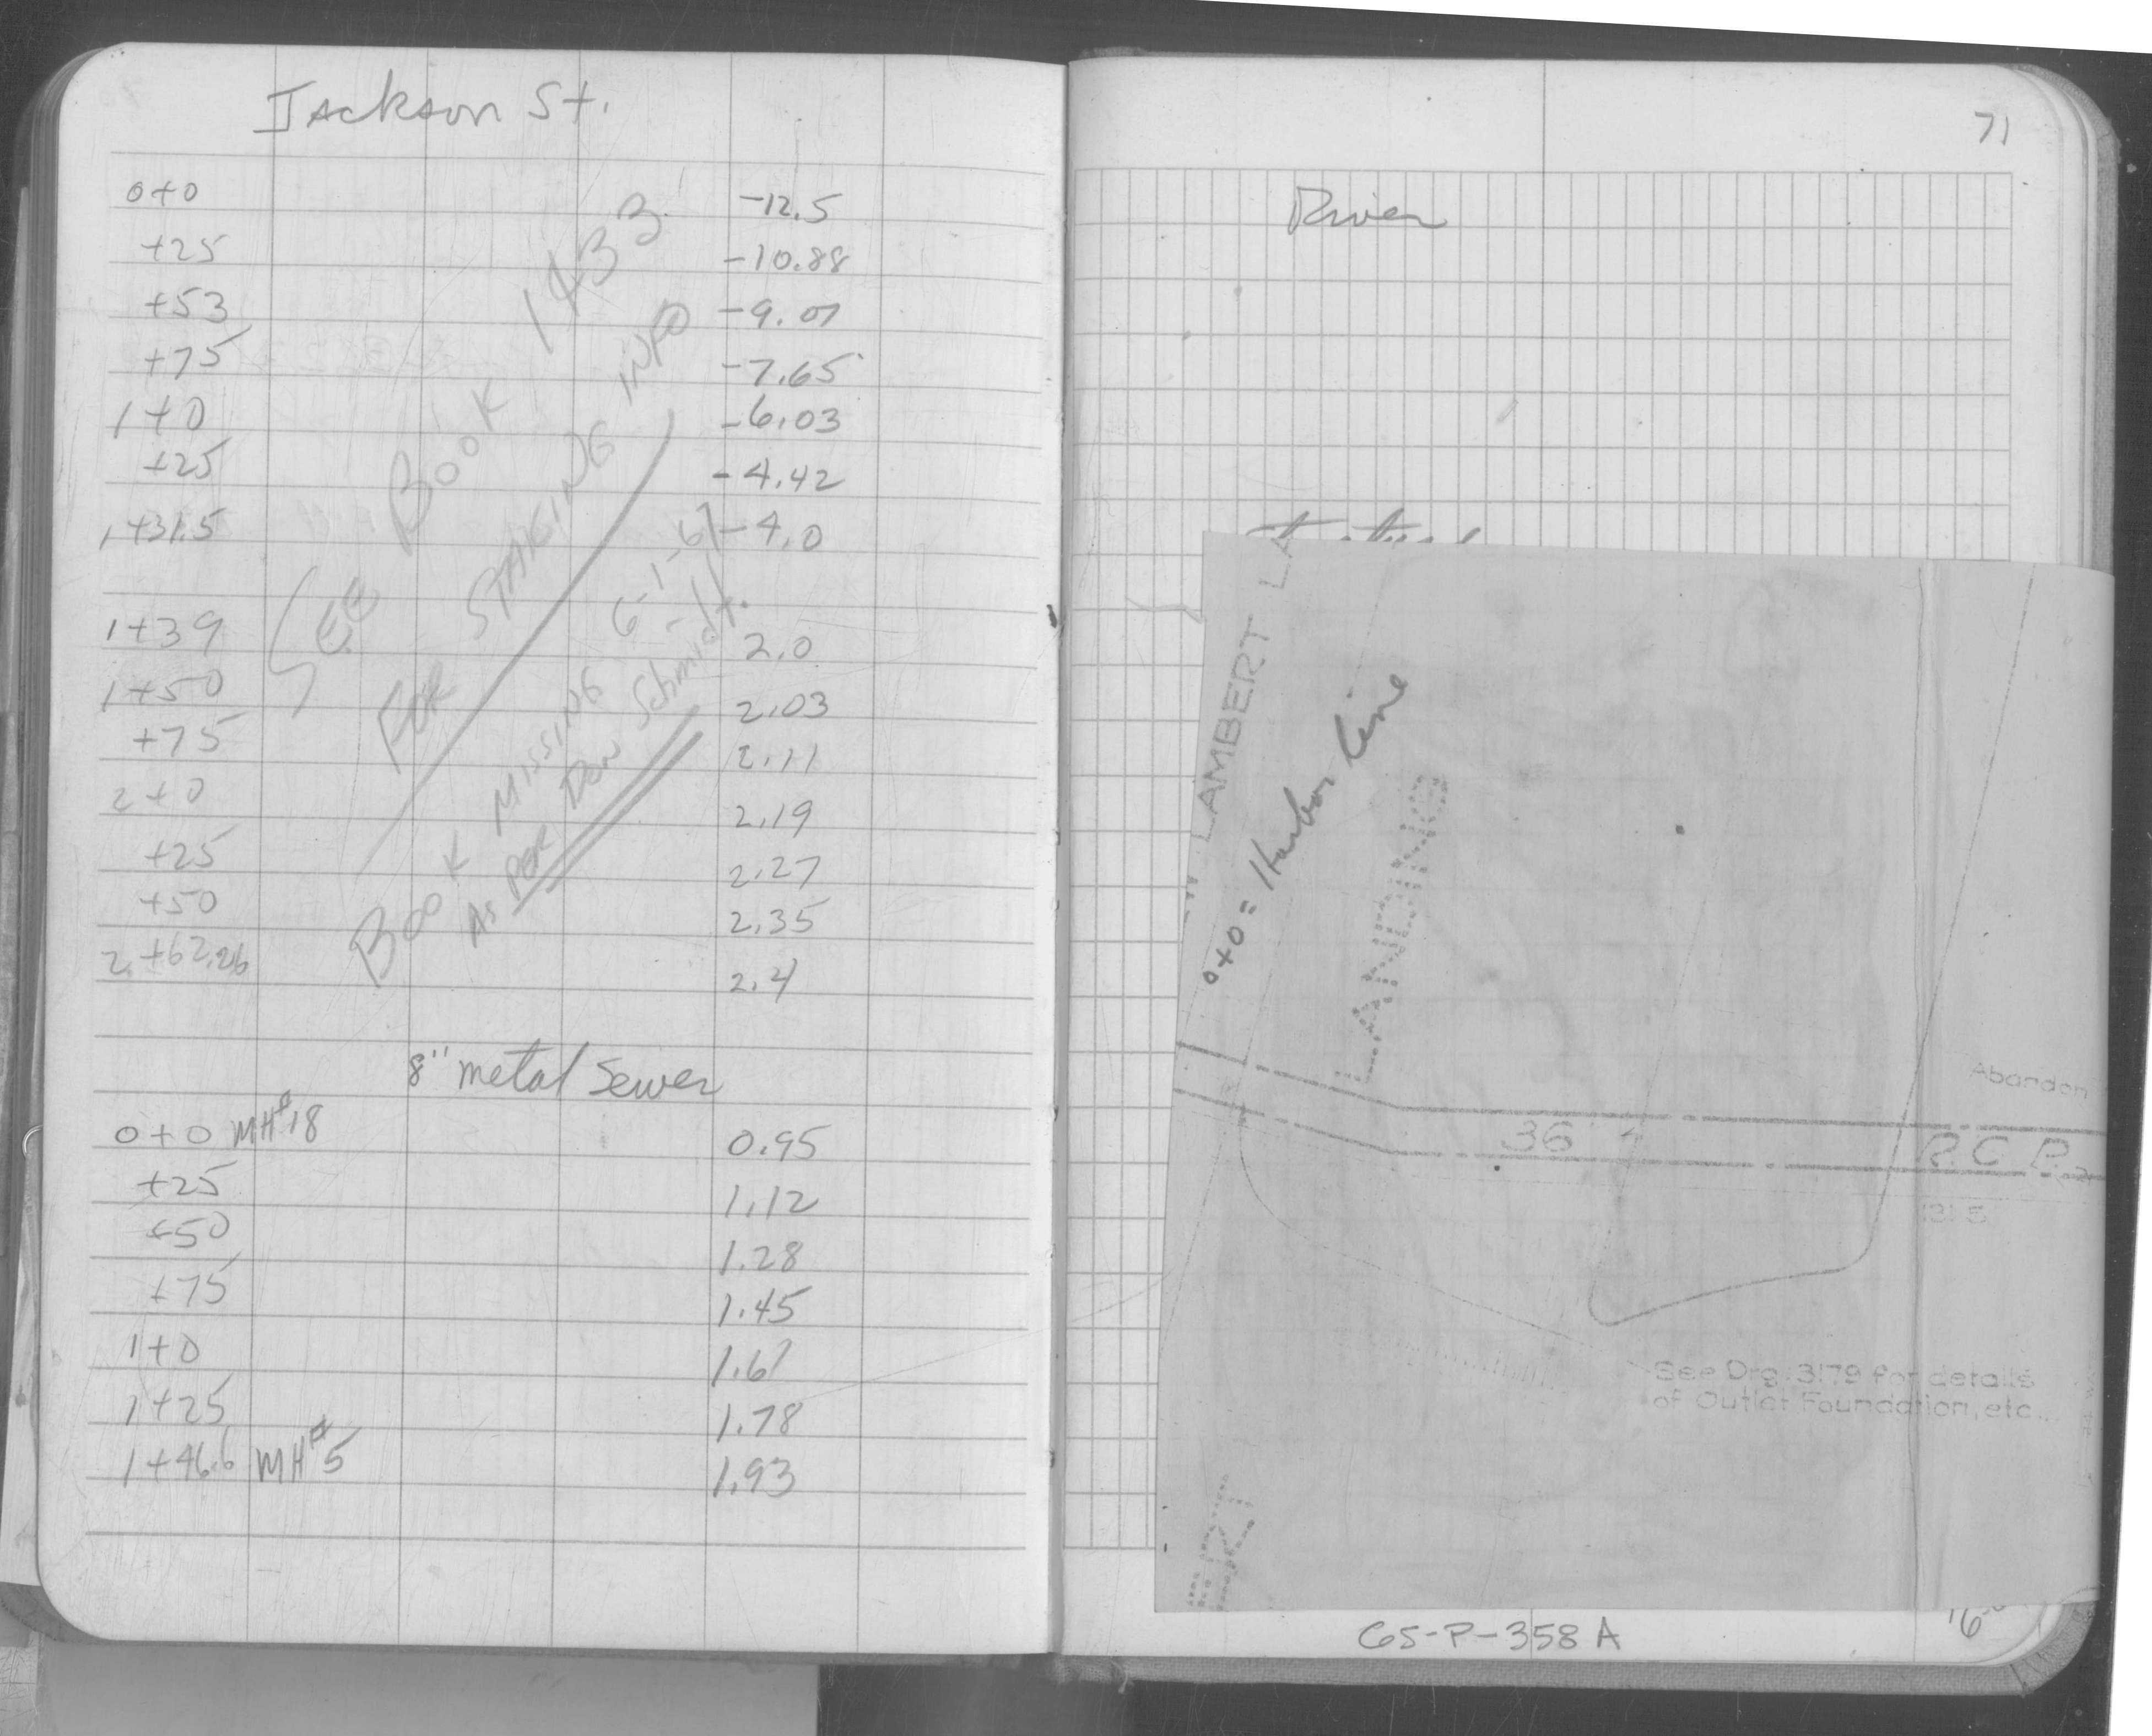 Jackson St.
0+0 -12.5
+25 -10.88
+53 -9.07
+75 -7.65
1+0 -6.03
+25 -4.42
1+31.5 -4.0
1+39 2.0
1+50 2.03
+75 2.11
2+0 2.19
+25 2.27
+50 2.35
2+62.26 2.4
SEE BOOK 1433
FOR STAKING INFO
BOOK MISSING 6-1-67
AS PER DON Schmidt.
8" metal Sewer
0+0 MH#18 0.95
+25 1.12
+50 1.28
+75 1.45
1+0 1.61
1+25 1.78
1+46.6 MH#5 1.93
71
River
LAMBERT LA
0+0 = Harbor Line
LANDING
Abandon
36" R.C.P.
See Drg. 3179 for details
of Outlet Foundation, etc.
GS-P-358 A